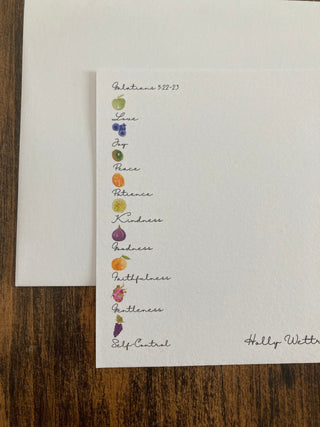 Galatians 5:22-23
Love
Joy
Peace
Patience
Kindness
Goodness
Faithfulness
Gentleness
Self-Control
Holly